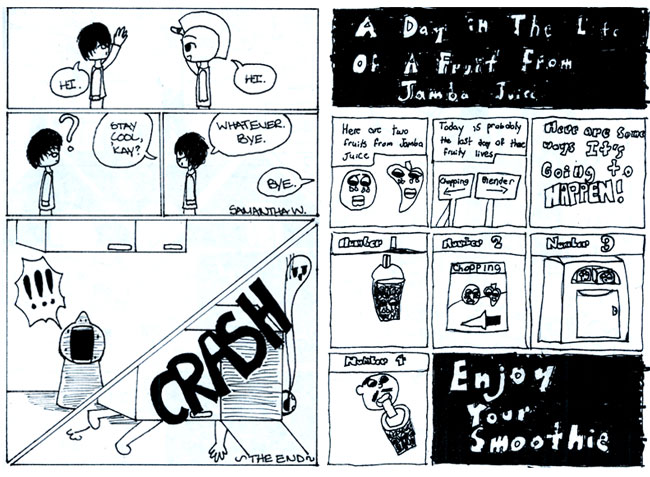 HI.
HI.
?
STAY
COOL,
'KAY?
WHATEVER.
BYE.
BYE.
SAMANTHA W.
!!!
CRASH
~THE END~
A Day in The Life
Of A Fruit From
Jamba Juice
Here are two
fruits from Jamba
Juice
Today is probably
the last day of these
fruity lives
Chopping
Blender
Here are some
ways It's
Going to
HAPPEN!
Number 1
Number 2
Chopping
Number 3
Number 4
Enjoy
Your
Smoothie